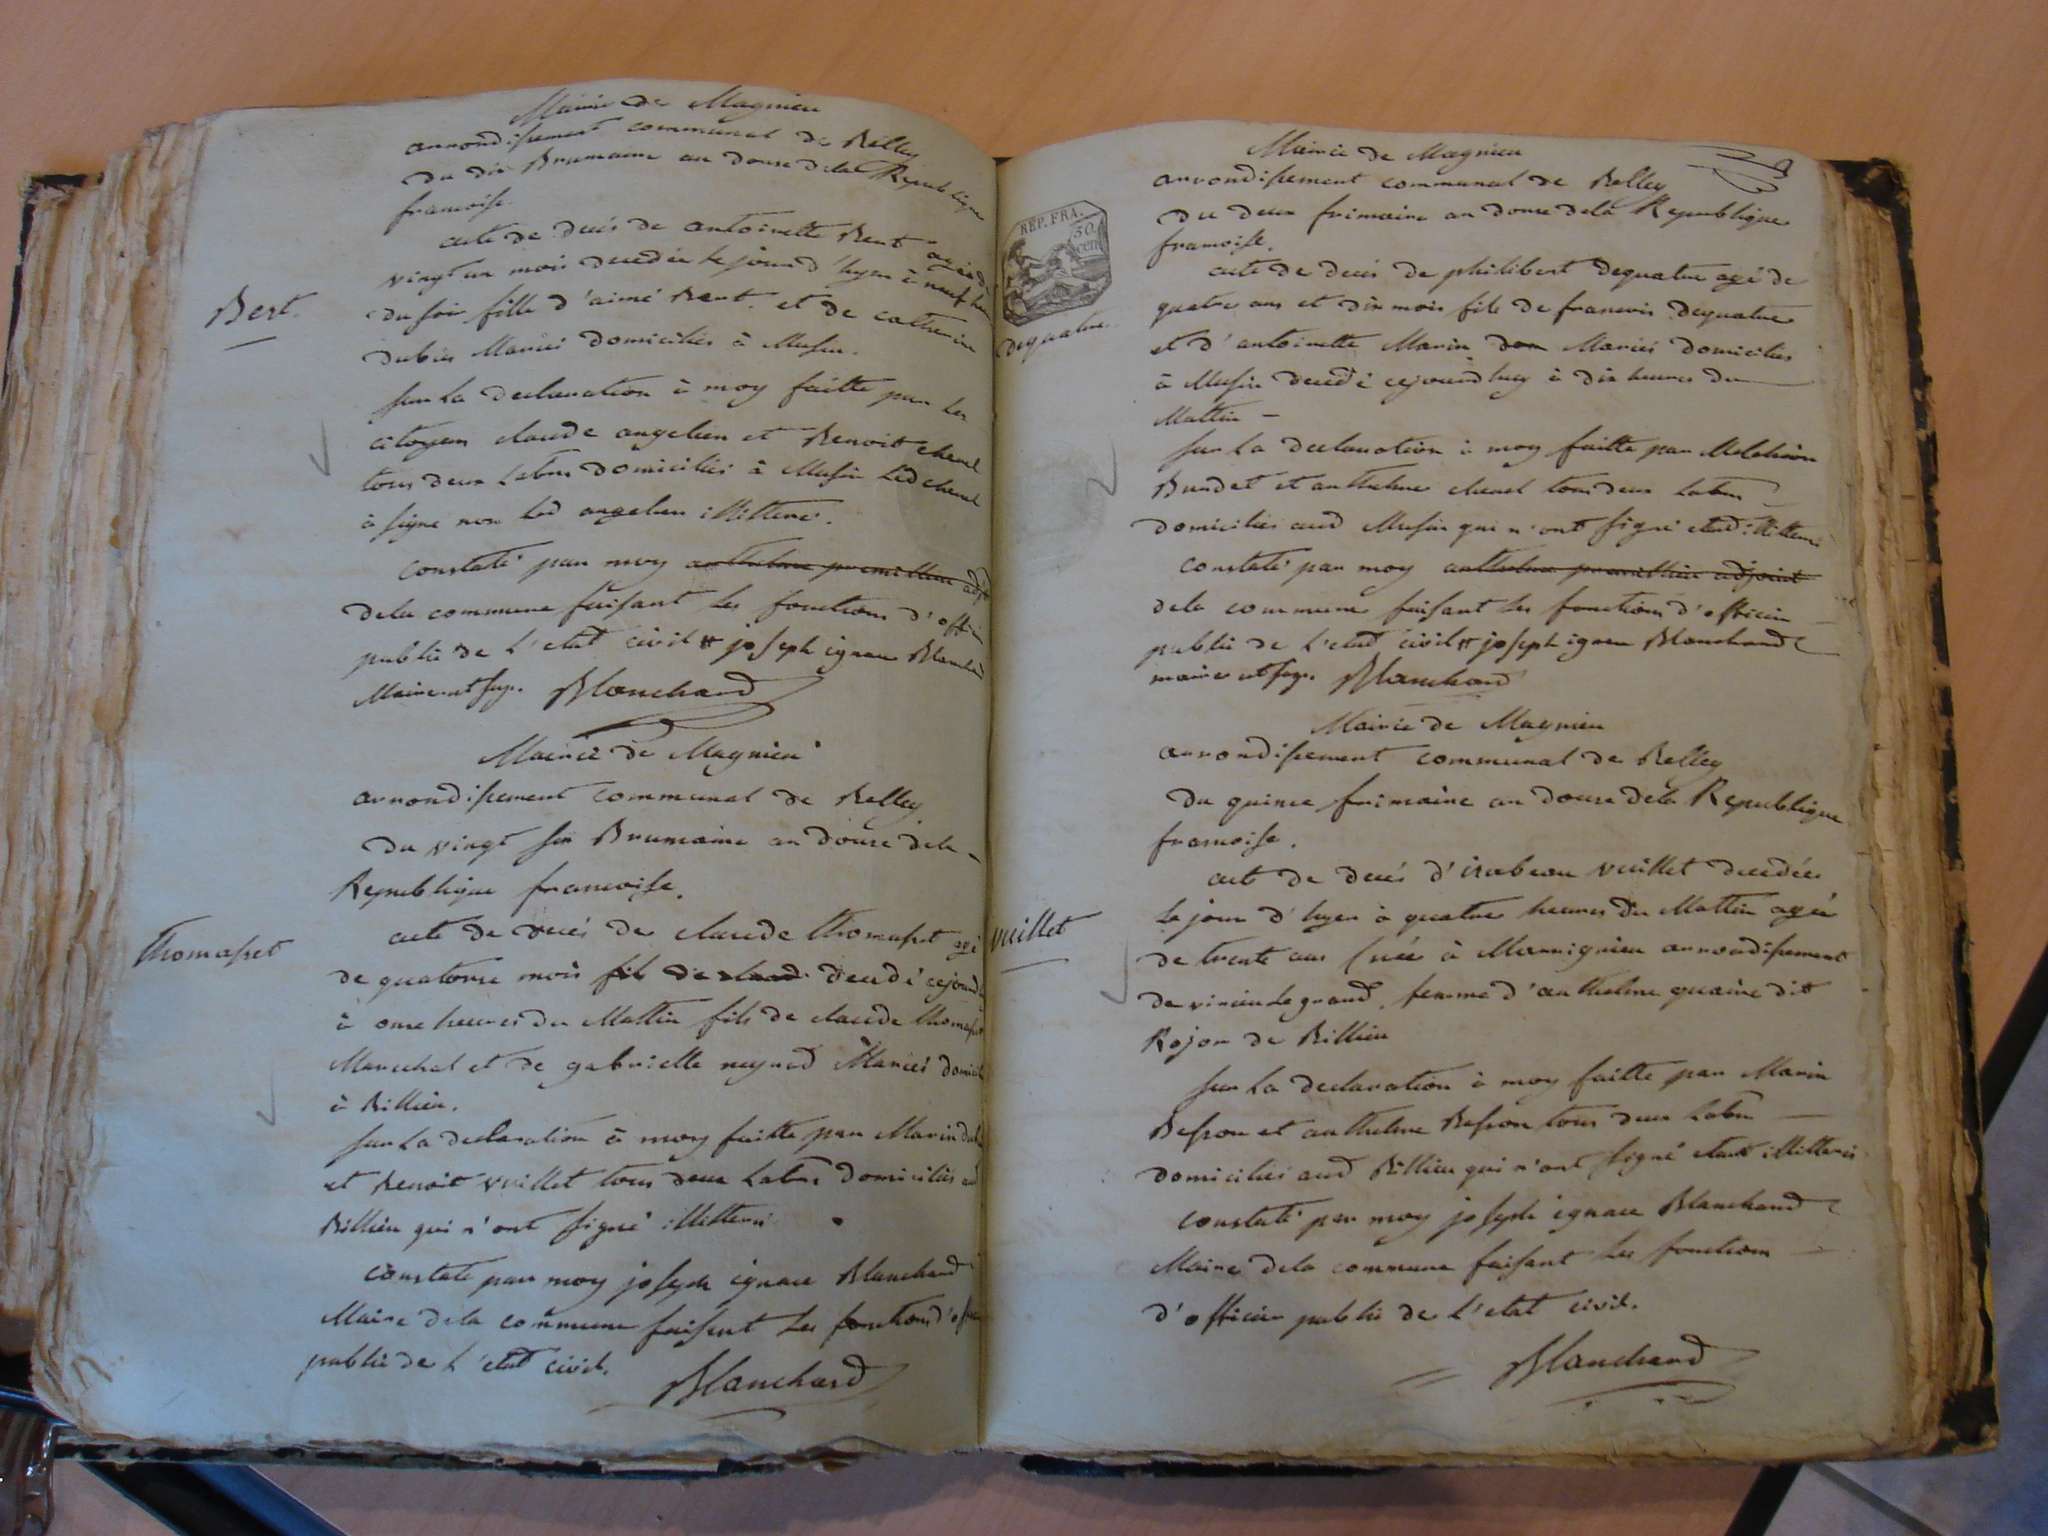 Mairie de Magnieu
arrondissement communal de Belley
du dix Brumaire an douse de la Republique
francoise.
acte de decés de antoinette Bert agée de
vingt un mois decedée le jour d'hyer à neuf heu
du soir fille d'aimé Bert et de catherine
dubier Mariés domiciliés à Musin.
Bert.
sur la declaration à moy faitte par les
citoyens claude angelier et Benoit chenel
tous deux Labrs domiciliés à Musin led chenel
à signe non led angelier illitteré.
constaté par moy anthelme premillieu adjt
de la commune faisant les fonctions d'officier
public de l'etat civil # joseph ignace Blanchard
Maire et sign. Blanchard
Mairie de Magnieu
arrondissement communal de Belley
du vingt six Brumaire an douse de la
Republique francoise.
Thomasset
acte de decés de claude Thomasset agé
de quatorse mois fils de claud decedé cejourdhuy
à onse heures du Mattin fils de claude Thomasset
Marechal et de gabrielle neyred Mariés domicil
à Billieu.
sur la declaration à moy faitte par Marin
et Benoit vuillet tous deux Labrs domiciliés aud
Billieu qui n'ont signé illitteré
constaté par moy joseph ignace Blanchard
Maire de la commune faisant les fonctions d'officier
public de l'etat civil.
Blanchard
REP. FRA.
50
cen
Mairie de Magnieu
arrondissement communal de Belley
du deux frimaire an douse de la Republique
francoise.
dequatre.
acte de decés de philibert dequatre agé de
quatre ans et dix mois fils de francois dequatre
et d'antoinette Marin dom Mariés domiciliés
à Musin decedé cejourdhuy à dix heures du
Mattin
sur la declaration à moy faitte par Melchior
Burdet et anthelme chenel tous deux Labrs
domiciliés aud Musin qui n'ont signé etant illitteré
constaté par moy anthelme premillieu adjoint
de la commune faisant les fonctions d'officier
public de l'etat civil # joseph ignace Blanchard
maire et sign. Blanchard
Mairie de Magnieu
arrondissement communal de Belley
du quinse frimaire an douse de la Republique
francoise.
vuillet
acte de decés d'isabeau vuillet decedée
le jour d'hyer à quatre heures du Mattin agée
de trente ans née à Marrignieu arrondissement
de virieu le grand, femme d'anthelme quaire dit
Rojon de Billieu
sur la declaration à moy faitte par Marin
Besson et anthelme Besson tous deux Labrs
domiciliés aud Billieu qui n'ont signé etant illitterés
constaté par moy joseph ignace Blanchard
Maire de la commune faisant les fonctions
d'officier public de l'etat civil.
Blanchard